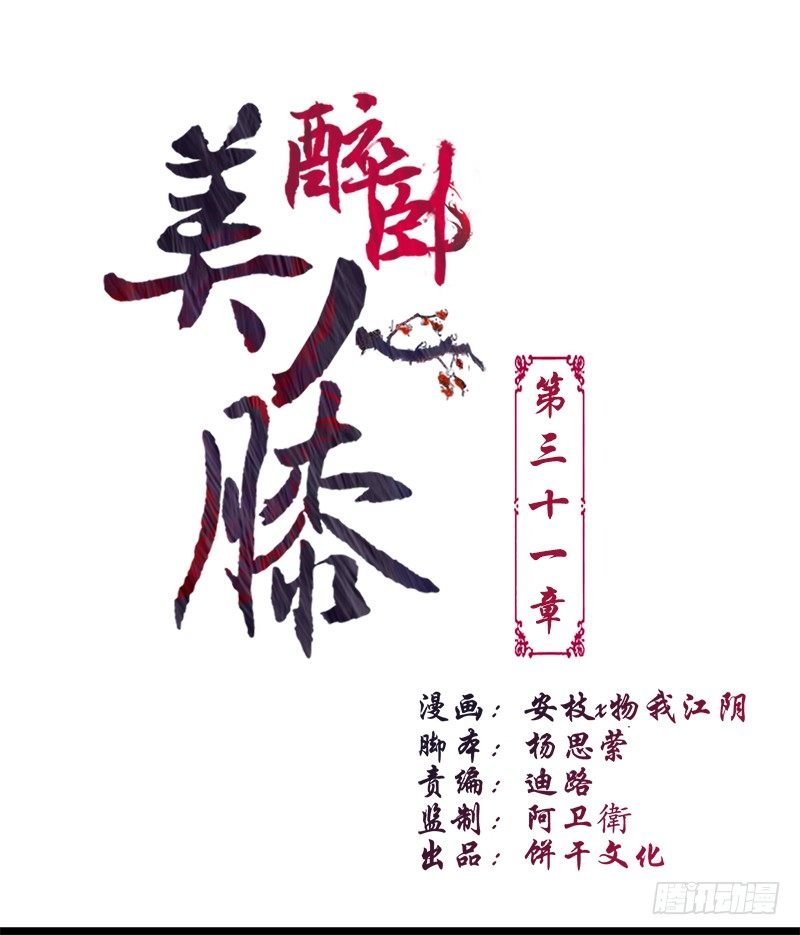 醉卧
美人膝
第三十一章
漫画：安枝x物我江阴
脚本：杨思萦
责编：迪路
监制：阿卫衛
出品：饼干文化
腾讯动漫